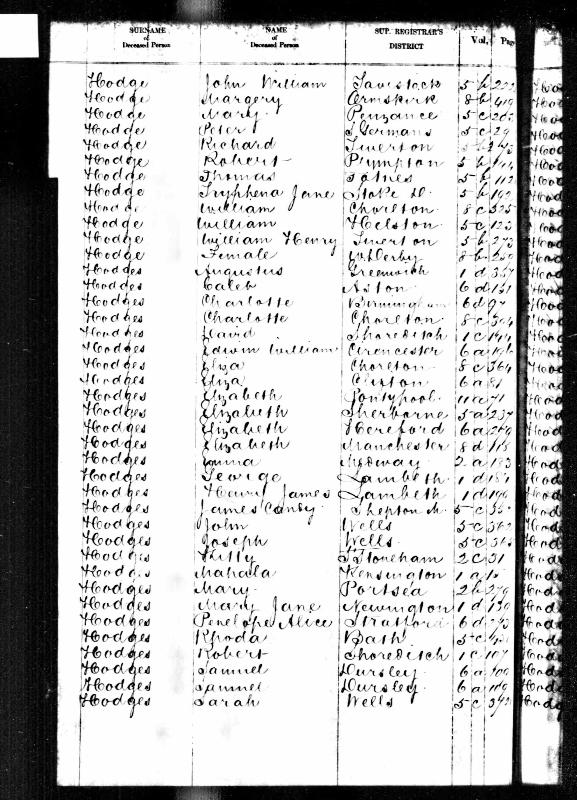 SURNAME of Deceased Person NAME of Deceased Person SUP. REGISTRAR'S DISTRICT Vol. Page
Hodge John William Tavistock 5 b 222
Hodge Margery Ormskirk 8 b 419
Hodge Mary Penzance 5 c
Hodge Peter S Germans 5 c 29
Hodge Richard Tiverton 5 b
Hodge Robert Plympton 5 b
Hodge Thomas Totnes 5 b 112
Hodge Tryphena Jane Stoke D. 5 b 192
Hodge William Chorlton 8 c 525
Hodge William Helston 5 c 123
Hodge William Henry Tiverton 5 b 273
Hodge Female 8 b 250
Hodges Augustus Greenwich 1 d 357
Hodges Caleb Aston 6 d 131
Hodges Charlotte Birmingham 6 d 9
Hodges Charlotte Chorlton 8 c 504
Hodges David Shoreditch 1 c 144
Hodges Edwin William Cirencester 6 a 196
Hodges Eliza Chorlton 8 c 364
Hodges Eliza Clifton 6 a 81
Hodges Elizabeth Pontypool 11 a 71
Hodges Elizabeth Sherborne 5 a 237
Hodges Elizabeth Hereford 6 a 249
Hodges Elizabeth Manchester 8 d 118
Hodges Emma Medway 2 a 183
Hodges George Lambeth 1 d 181
Hodges Henry James Lambeth 1 d 196
Hodges James Shepton M. 5 c
Hodges John Wells 5 c 362
Hodges Joseph Wells 5 c 365
Hodges Kitty S. Stoneham 2 c 31
Hodges Mahala Kensington 1 a 15
Hodges Mary Portsea 2 b 279
Hodges Mary Jane Newington 1 d 130
Hodges Penelope Alice Stratford 6 d
Hodges Rhoda Bath 5 c
Hodges Robert Shoreditch 1 c 107
Hodges Samuel Dursley 6 a
Hodges Samuel Dursley 6 a
Hodges Sarah Wells 5 c